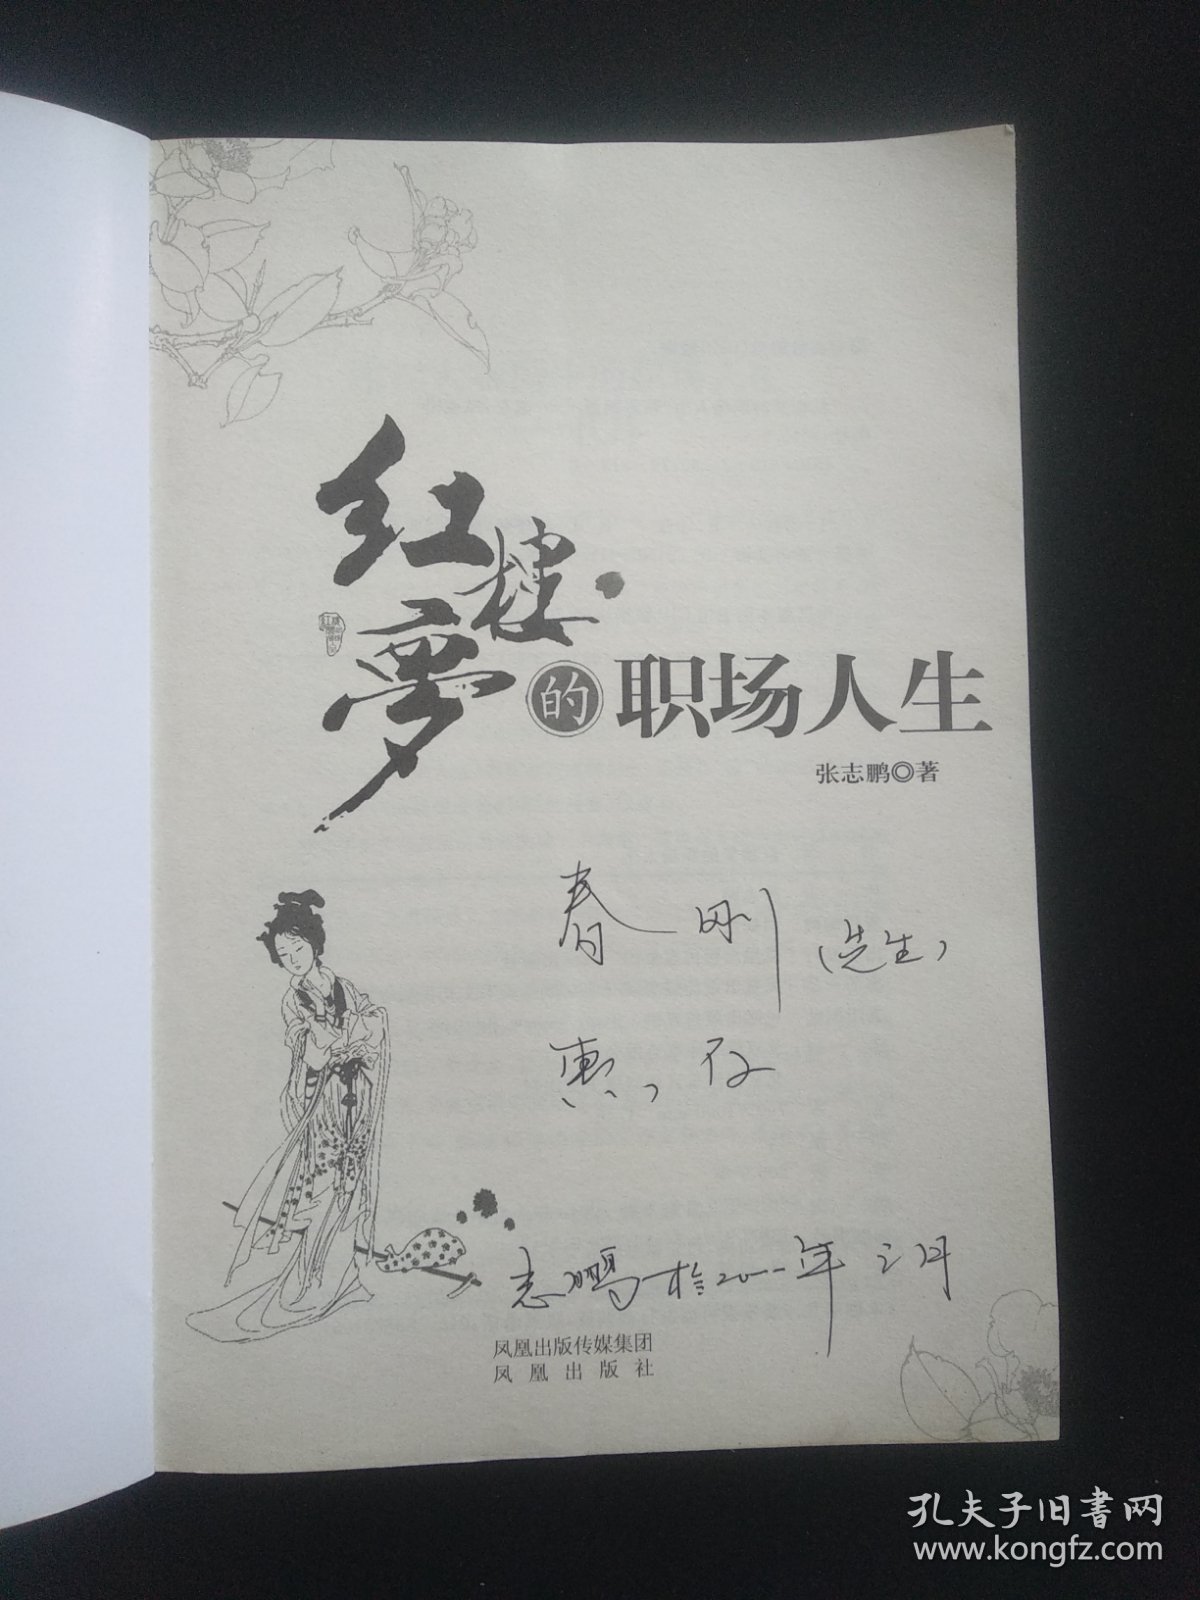 红楼
梦的职场人生
张志鹏◎著
春刚(先生)
惠存
志鹏于2011年三月
凤凰出版传媒集团
凤凰出版社
孔夫子旧书网
www.kongfz.com